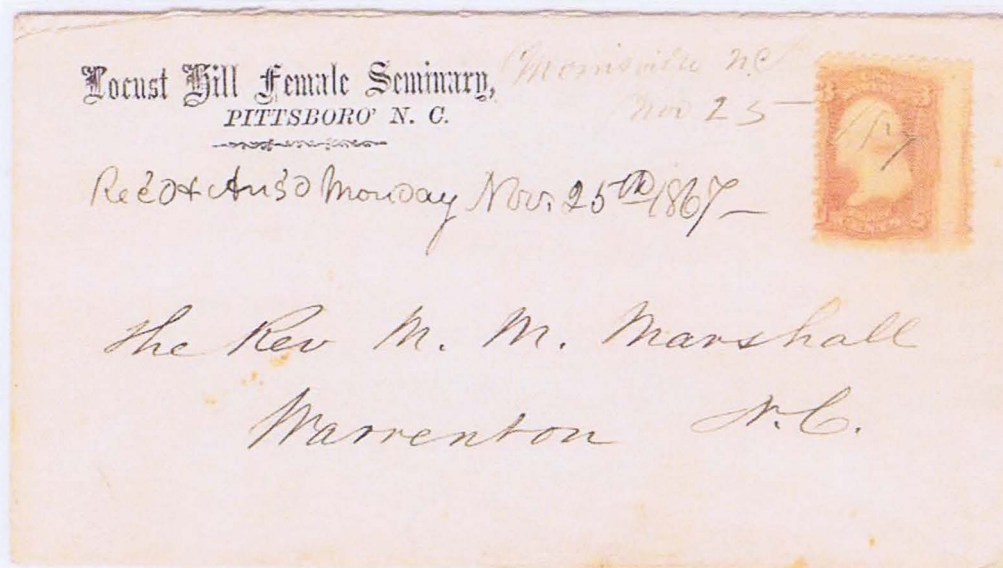 Locust Hill Female Seminary,
PITTSBORO' N. C.
Morrisville N.C
Nov 25
Rec'd & Ans'd Monday Nov. 25th 1867
The Rev M. M. Marshall
Warrenton N.C.
3 3